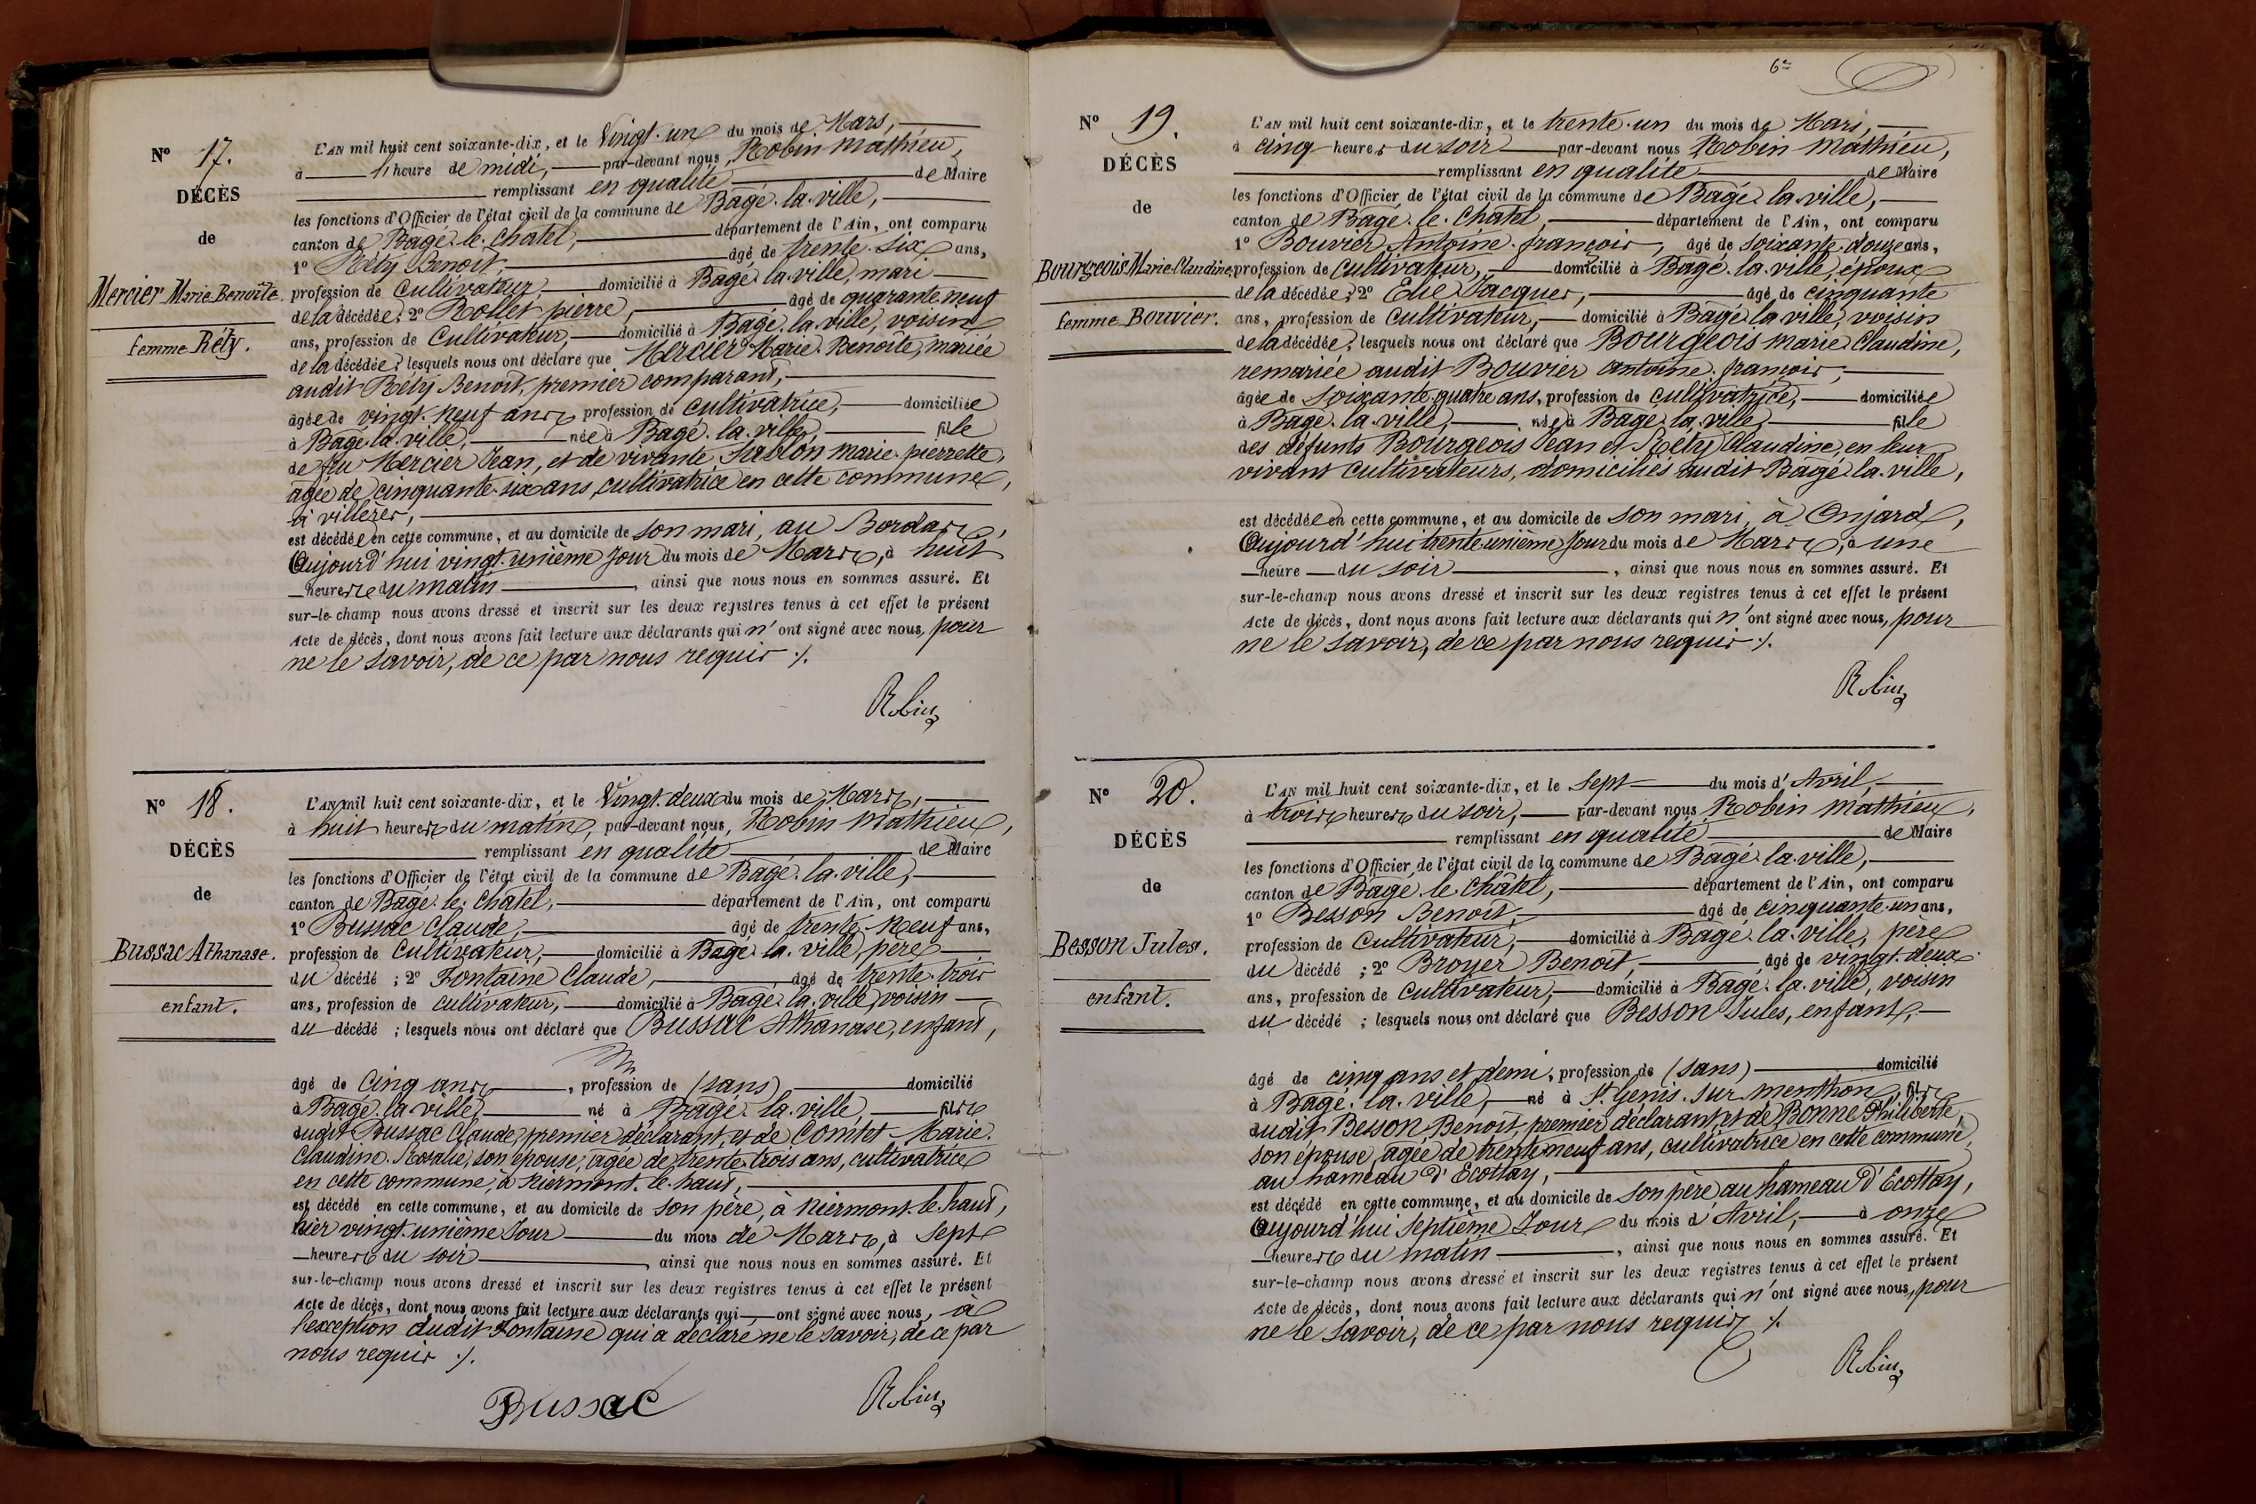 N° 17.
DÉCÈS
de
Mercier Marie Benoîte
femme Réty.
L'AN mil huit cent soixante-dix, et le Vingt-un du mois de Mars,
à 1 heure de midi, par-devant nous, Robin Mathieu,
remplissant en qualité de Maire
les fonctions d'Officier de l'état civil de la commune de Bâgé-la-ville,
canton de Bâgé-le-Châtel, département de l'Ain, ont comparu
1° Réty Benoit, âgé de trente-six ans,
profession de Cultivateur, domicilié à Bâgé-la-ville, mari
de la décédée; 2° Rollet pierre, âgé de quarante-neuf
ans, profession de Cultivateur, domicilié à Bâgé-la-ville, voisin
de la décédée; lesquels nous ont déclaré que Mercier Marie-Benoîte, mariée
audit Réty Benoit, premier comparant,
âgée de vingt-neuf ans, profession de Cultivatrice, domiciliée
à Bâgé-la-ville, née à Bâgé-la-ville, fille
de feu Mercier Jean, et de vivante Sablon marie-pierrette,
agée de cinquante-six ans, cultivatrice en cette commune,
à villeres,
est décédée en cette commune, et au domicile de son mari, au Bordars,
Aujourd'hui vingt-unième Jour du mois de Mars, à huit
heures du matin, ainsi que nous nous en sommes assuré. Et
sur-le-champ nous avons dressé et inscrit sur les deux registres tenus à cet effet le présent
Acte de décès, dont nous avons fait lecture aux déclarants qui n'ont signé avec nous, pour
ne le savoir, de ce par nous requis ./.
Robin
N° 18.
DÉCÈS
de
Bussac Athanase.
enfant.
L'AN mil huit cent soixante-dix, et le Vingt-deux du mois de Mars,
à huit heures du matin, par-devant nous, Robin Mathieu,
remplissant en qualité de Maire
les fonctions d'Officier de l'état civil de la commune de Bâgé-la-ville,
canton de Bâgé-le-Châtel, département de l'Ain, ont comparu
1° Bussac Claude, âgé de trente-Neuf ans,
profession de Cultivateur, domicilié à Bâgé-la-ville, père
du décédé ; 2° Fontaine Claude, âgé de trente-trois
ans, profession de cultivateur, domicilié à Bâgé-la-ville, voisin
du décédé ; lesquels nous ont déclaré que Bussac Athanase, enfant,
âgé de Cinq ans, profession de (sans) domicilié
à Bâgé-la-ville, né à Bâgé-la-ville, fils
dudit Bussac Claude, premier déclarant, et de Comtet Marie-
Claudine-Rosalie, son épouse, agée de trente-trois ans, cultivatrice
en cette commune, à Niermont-le-haut,
est décédé en cette commune, et au domicile de son père, à Niermont-le-haut,
hier vingt-unième Jour du mois de Mars, à sept
heures du soir, ainsi que nous nous en sommes assuré. Et
sur-le-champ nous avons dressé et inscrit sur les deux registres tenus à cet effet le présent
Acte de décès, dont nous avons fait lecture aux déclarants qui ont signé avec nous, à
l'exception dudit Fontaine qui a déclaré ne le savoir, de ce par
nous requis ./.
Bussac Robin
6e
N° 19.
DÉCÈS
de
Bourgeois Marie-Claudine,
femme Bouvier.
L'AN mil huit cent soixante-dix, et le trente-un du mois de Mars,
à cinq heures du soir par-devant nous Robin Mathieu,
remplissant en qualité de Maire
les fonctions d'Officier de l'état civil de la commune de Bâgé-la-ville,
canton de Bâgé-le-Châtel, département de l'Ain, ont comparu
1° Bouvier Antoine-françois, âgé de soixante-douze ans,
profession de Cultivateur, domicilié à Bâgé-la-ville, époux
de la décédée; 2° Elie Jacques, âgé de cinquante
ans, profession de Cultivateur, domicilié à Bâgé-la-ville, voisin
de la décédée; lesquels nous ont déclaré que Bourgeois marie Claudine,
remariée audit Bouvier antoine-françois,
âgée de soixante-quatre ans, profession de Cultivatrice, domiciliée
à Bâgé-la-ville, née à Bâgé-la-ville, fille
des défunts Bourgeois Jean et Réty Claudine, en leur
vivant cultivateurs, domiciliés audit Bâgé-la-ville,
est décédée en cette commune, et au domicile de son mari, à Onjard,
Aujourd'hui trente-unième Jour du mois de Mars, à une
heure du soir, ainsi que nous nous en sommes assuré. Et
sur-le-champ nous avons dressé et inscrit sur les deux registres tenus à cet effet le présent
Acte de décès, dont nous avons fait lecture aux déclarants qui n'ont signé avec nous, pour
ne le savoir, de ce par nous requis ./.
Robin
N° 20.
DÉCÈS
de
Besson Jules.
enfant.
L'AN mil huit cent soixante-dix, et le Sept du mois d'Avril,
à trois heures du soir, par-devant nous Robin Mathieu,
remplissant en qualité de Maire
les fonctions d'Officier de l'état civil de la commune de Bâgé-la-ville,
canton de Bâgé-le-Châtel, département de l'Ain, ont comparu
1° Besson Benoit, âgé de cinquante-un ans,
profession de Cultivateur, domicilié à Bâgé-la-ville, père
du décédé ; 2° Broyer Benoit, âgé de vingt-deux
ans, profession de Cultivateur, domicilié à Bâgé-la-ville, voisin
du décédé ; lesquels nous ont déclaré que Besson Jules, enfant,
âgé de cinq ans et demi, profession de (sans) domicilié
à Bâgé-la-ville, né à St. Genis-sur-menthon, fils
dudit Besson Benoit, premier déclarant, et de Bonne Philiberte,
son épouse, agée de trente-neuf ans, cultivatrice en cette commune,
au hameau d'Ecottay,
est décédé en cette commune, et au domicile de son père au hameau d'Ecottay,
Aujourd'hui Septième Jour du mois d'Avril, à onze
heures du matin, ainsi que nous nous en sommes assuré. Et
sur-le-champ nous avons dressé et inscrit sur les deux registres tenus à cet effet le présent
Acte de décès, dont nous avons fait lecture aux déclarants qui n'ont signé avec nous, pour
ne le savoir, de ce par nous requis ./.
Robin